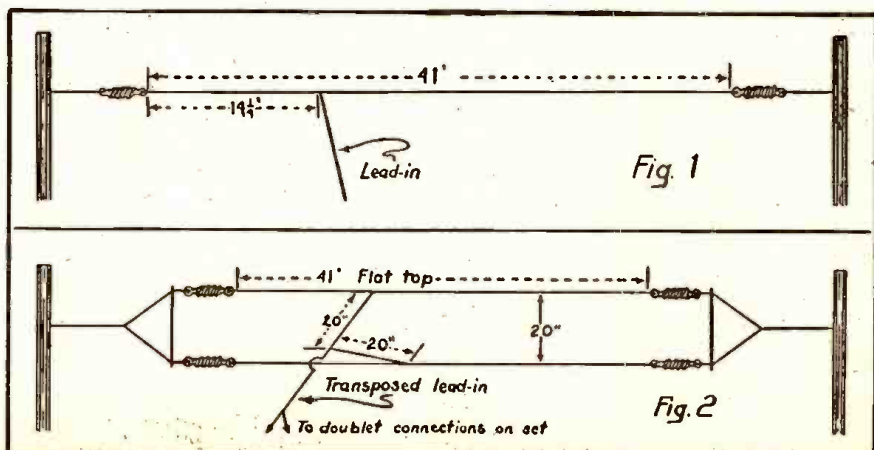 41'
14¼'
Lead-in
Fig. 1
41' Flat top
20"
20"
20"
Transposed lead-in
To doublet connections on set
Fig. 2